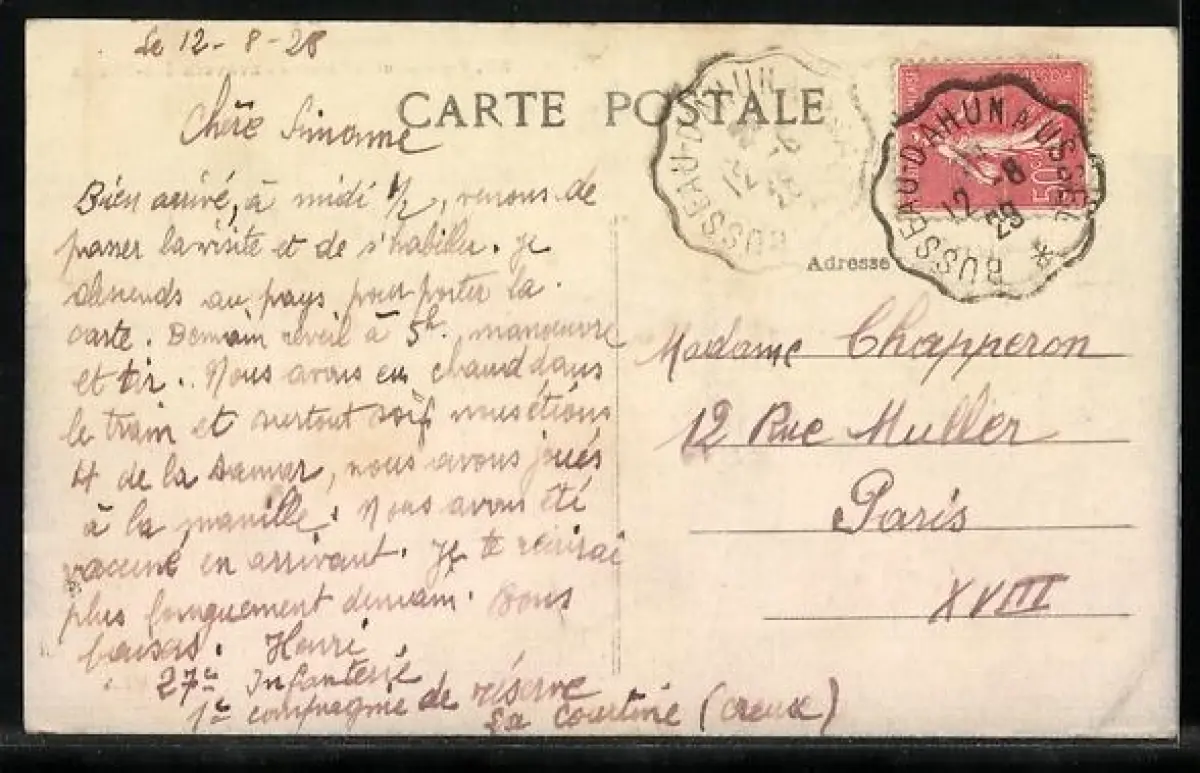 Le 12-8-28
Chère Simone
CARTE POSTALE
Bien arrivé, à midi 1/2, venons de
passer la visite et de s'habiller. Je
descends au pays pour porter la
carte. Demain réveil à 5h. manoeuvre
et tir. Nous avons eu chaud dans
le train et surtout soif nous étions
4 de la, nous avons joués
à la manille. Nous avons été
vacciné en arrivant. Je te récrirai
plus longuement demain. Bons
baisers. Henri
27e Infanterie
1e compagnie de réserve
La Courtine (Creuse)
BUSSEAU-D'AHUN
12 -8
BUSSEAU-D'AHUN A USSEL *
12 -8
29
50c
Adresse
Madame Chapperon
12 Rue Muller
Paris
XVIII